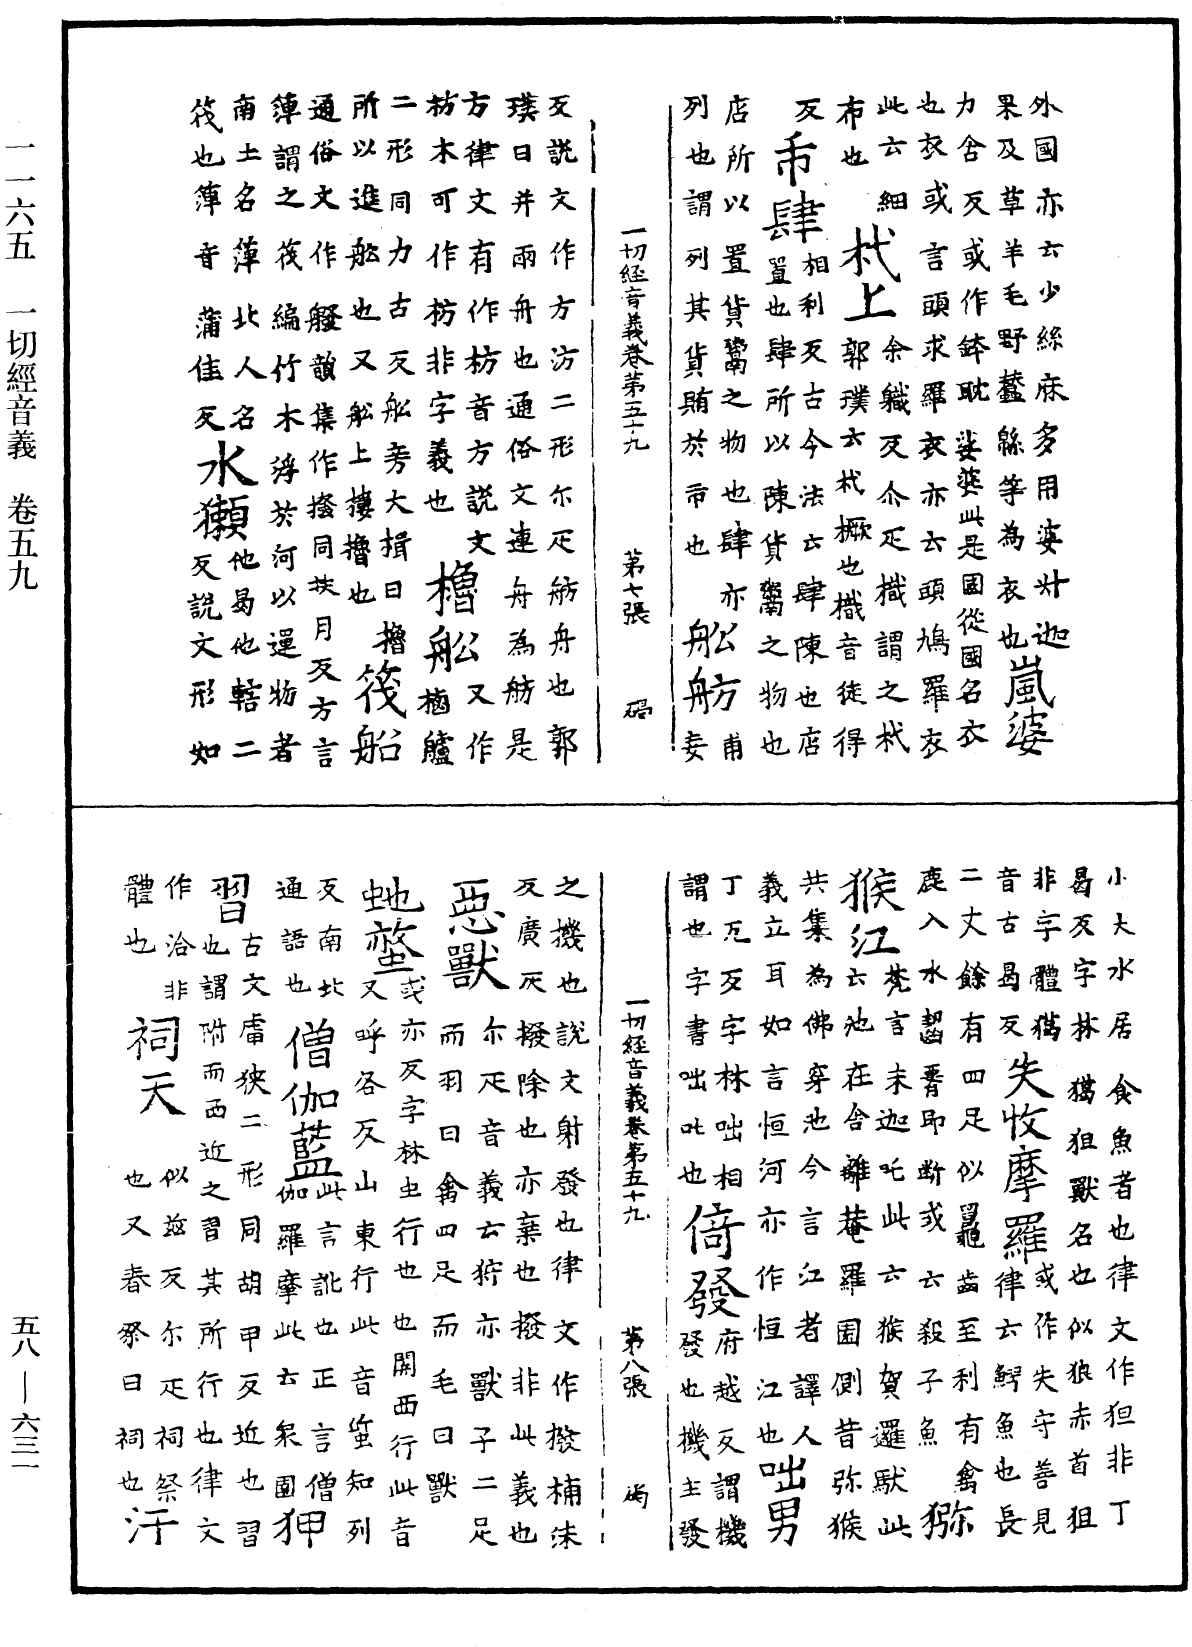 一一六五　一切經音義　卷五九
外國亦云少絲麻多用婆𠦃迦
果及草羊毛野蠶緜等為衣也嵐婆
力含反或作鉢耽娑婆此是國從國名衣
也衣或言頭求羅衣亦云頭鳩羅衣
此云細
布也
杙上
余職反尒疋樴謂之杙
郭璞云杙橛也樴音徒得
反
市肆
相利反古今法云肆陳也店
置也肆所以陳貨鬻之物也
店所以置貨鬻之物也肆亦
列也謂列其貨賄於市也
舩舫
甫
妄
一切經音義卷第五十九　第七張　碣
反說文作方汸二形尒疋舫舟也郭
璞曰并兩舟也通俗文連舟為舫是
方律文有作枋音方說文
枋木可作枋非字義也
櫓舩
又作
樐艫
二形同力古反舩旁大楫曰櫓
所以進舩也又舩上摟櫓也
筏船
通俗文作𦪑韻集作撥同扶月反方言
簰謂之筏編竹木浮於河以運物者
南土名簰北人名
筏也簰音蒲佳反
水獺
他曷他轄二
反說文形如
小犬水居食魚者也律文作狚非丁
曷反字林獦狚獸名也似狼赤首狚
非字體獦
音古曷反
失收摩羅
或作失守善見
律云鰐魚也長
二丈餘有四足似鼉齒至利有禽
鹿入水齧脊即斷或云殺子魚
獼
猴江
梵言末迦吒此云猴賀邏馱此
云池在舍離菴羅園側昔弥猴
共集為佛穿池今言江者譯人
義立耳如言恒河亦作恒江也
咄男
丁兀反字林咄相謂也字書咄叱也
倚發
府越反謂機
發也機主發
之機也說文射發也律文作撥補沫
反廣疋撥除也亦棄也撥非此義也
惡獸
尒疋音義云狩亦獸子二足
而羽曰禽四足而毛曰獸
虵螫
或亦反字林虫行也　也關西行此音
又呼各反山東行此音蛋知列
反南北
通語也
僧伽藍
此言訛也正言僧
伽羅摩此云衆園
狎
習
古文㢇狹二形同胡甲反近也習
也謂附而西近之習其所行也律文
作洽非
體也
祠天
似茲反尒疋祠祭
也又春祭曰祠也
汙
一切經音義卷第五十九　第八張　碣
五八—六三一